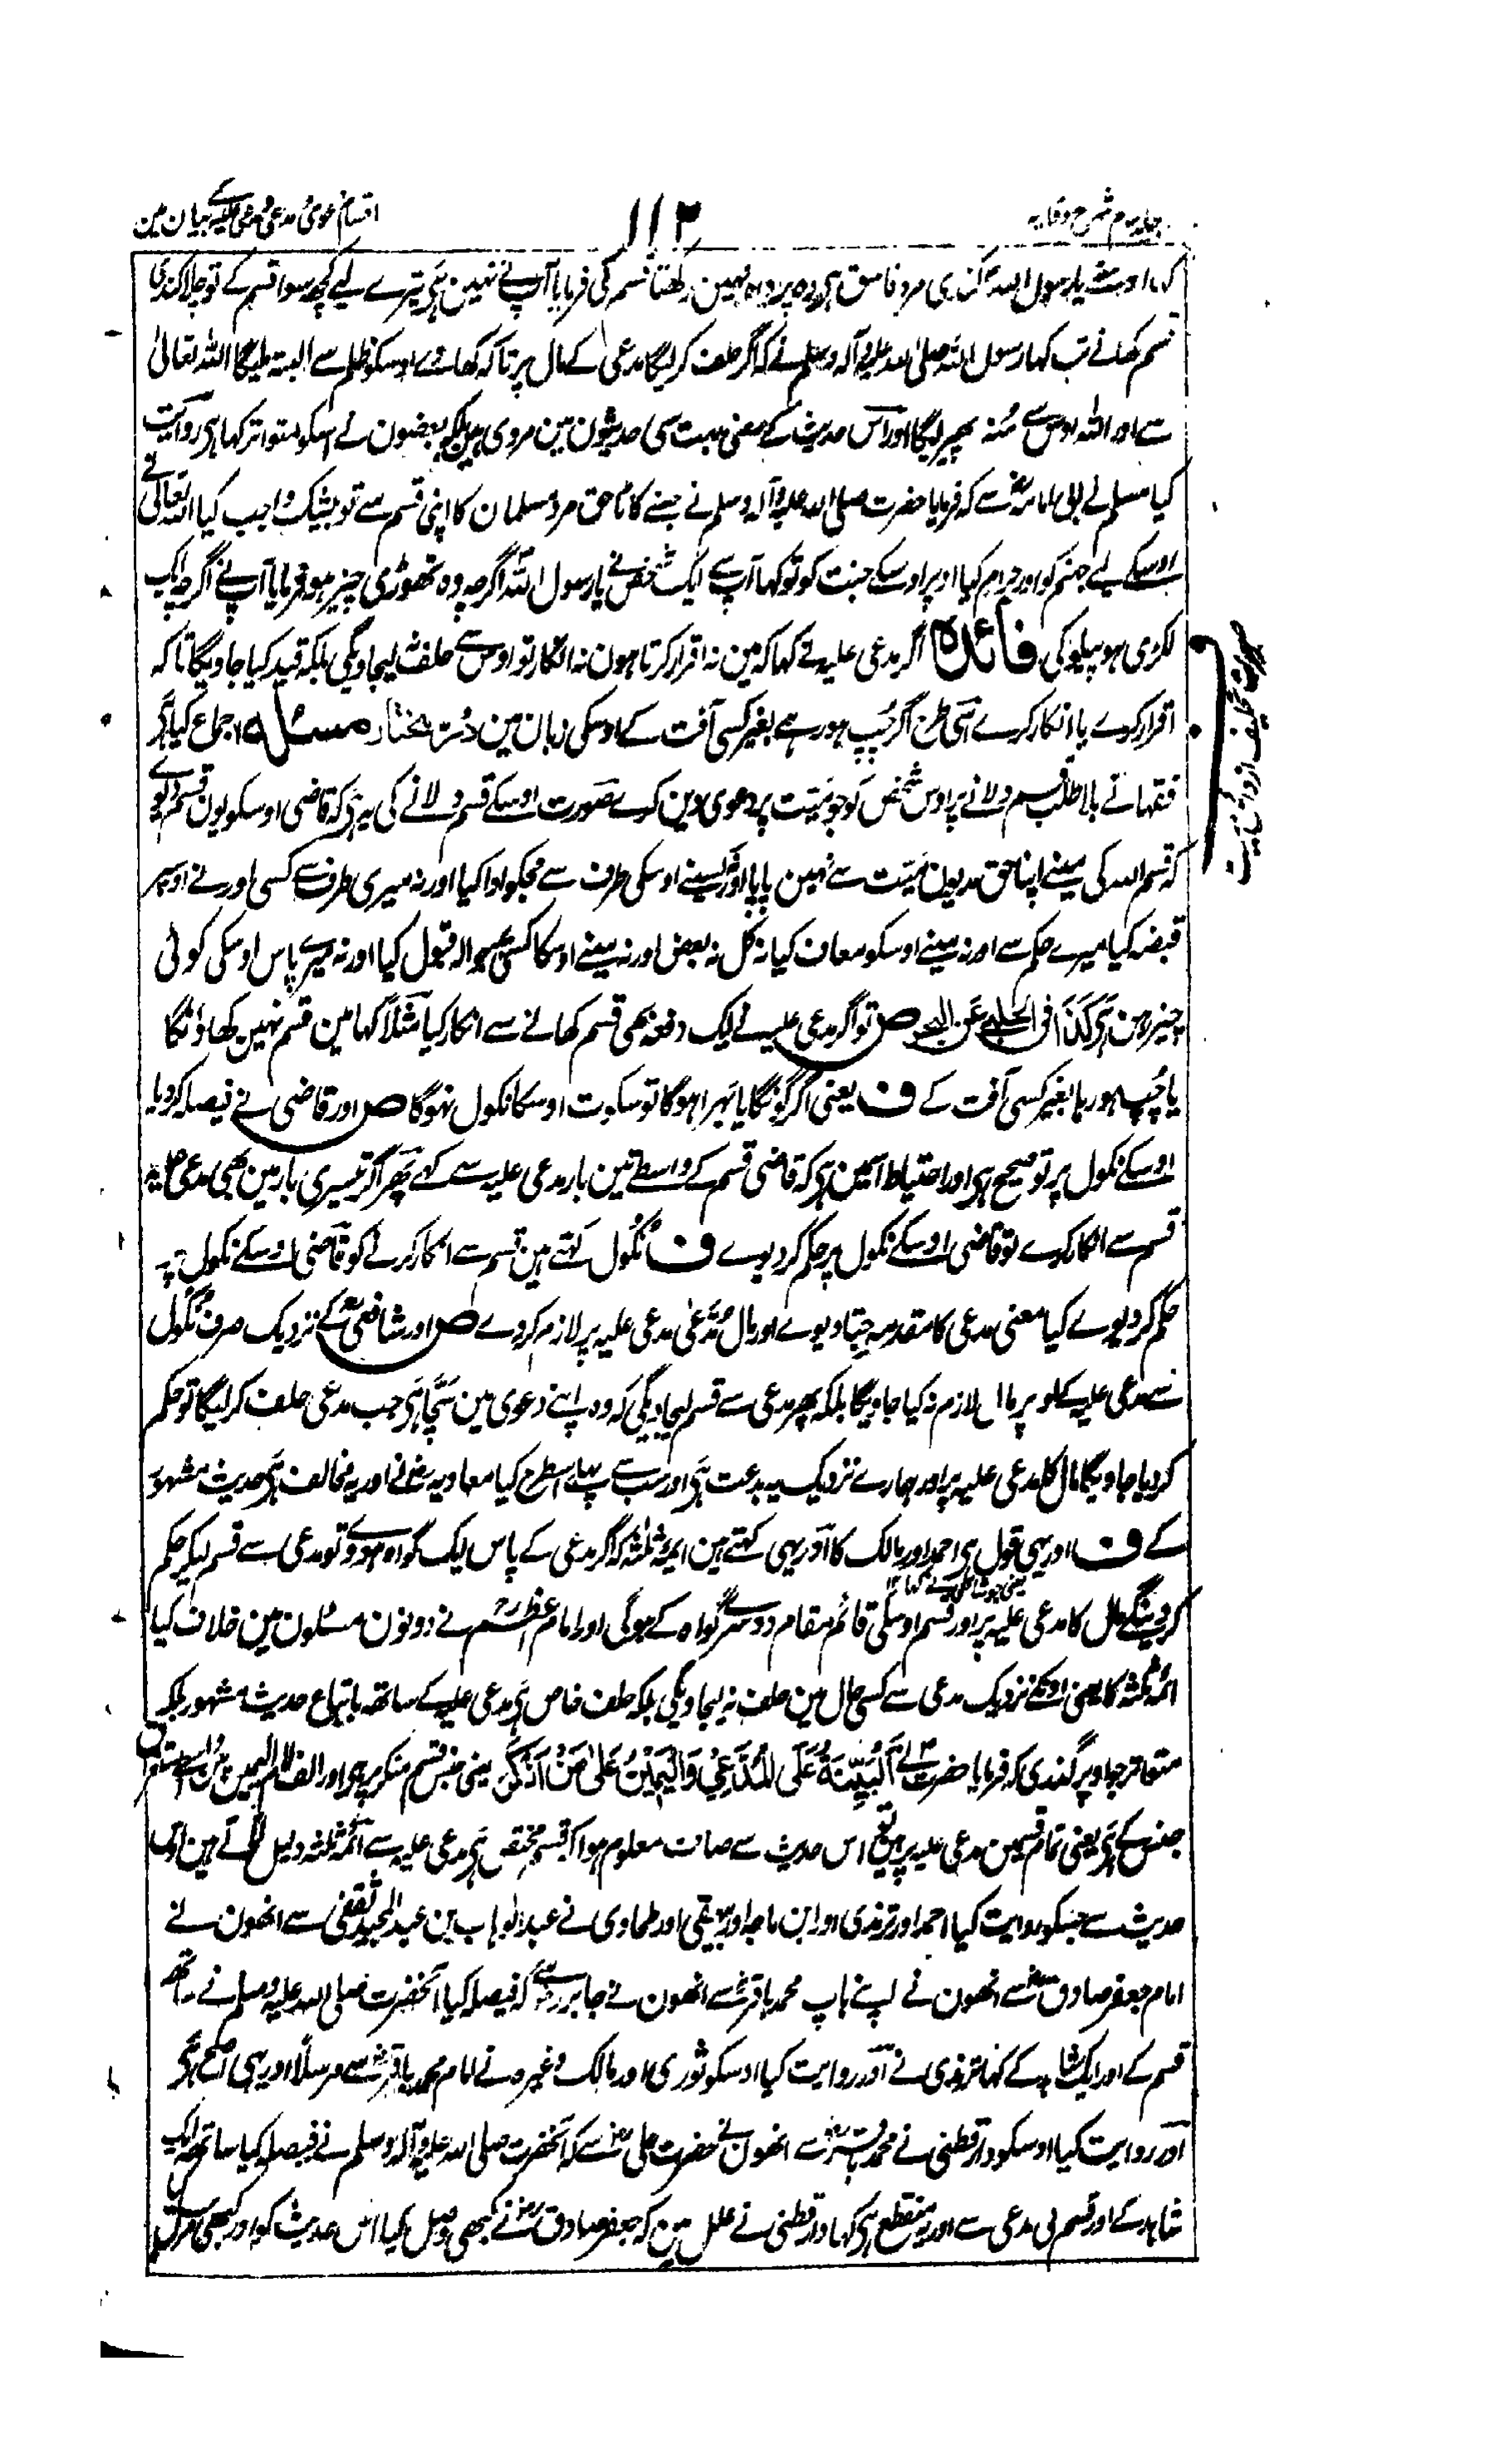 جلد سوم شرح وقایہ
۱۱۲
اقسام دعوی و مدعی و مدعی علیہ کے بیان مین
کہا اوسنے یا رسول اللہ کندی مرد فاسق ہی وہ پروا نہین رکھتا قسم کی فرمایا آپ نے نہین ہی تیرے لیے کچھ سوا قسم کے تو چلا کندی
قسم کھانے تب کہا رسول اللہ صلی اللہ علیہ وآلہ وسلم نے کہ اگر حلف کر لیگا مدعی کے مال پر تاکہ کھاوے اوسکو ظلم سے البتہ ملیگا اللہ تعالی
سے اور اللہ اوس سے مُنہ پھیر لیگا اور اس حدیث کے معنی بہت سی حدیثون مین مروی ہین بلکہ بعضون نے اسکو متواتر کہا ہی روایت
کیا مسلم نے ابی امامہ رض سے کہ فرمایا حضرت صلی اللہ علیہ وآلہ وسلم نے جسنے کاٹا حق مرد مسلمان کا اپنی قسم سے تو بیشک واجب کیا اللہ تعالی نے
اوسکے لیے جہنم کو اور حرام کیا اوپر اوسکے جنت کو تو کہا آپ سے ایک شخص نے یا رسول اللہ اگرچہ وہ تھوڑی چیز ہو فرمایا آپ نے اگرچہ ایک
لکڑی ہو پیلو کی فائدہ اگر مدعی علیہ نے کہا کہ مین نہ اقرار کرتا ہون نہ انکار تو اوس سے حلف نہ لیجاویگی بلکہ قید کیا جاویگا تاکہ
اقرار کرے یا انکار کرے اسی طرح اگر چُپ ہو رہے بغیر کسی آفت کے اوسکی زبان مین در مختار مسئلہ اجماع کیا ہی
فقہا نے بلا طلب قسم دلانے پر اوس شخص کو جو میّت پر دعوی دین کرے صورت اوسکے قسم دلانے کی یہ ہی کہ قاضی اوسکو یون قسم دلوے
کہ قسم اللہ کی مینے اپنا حق مدیون میّت سے نہین پایا اور نہ کسینے اوسکی طرف سے مجکو ادا کیا اور نہ میری طرف سے کسی اور نے اوسپر
قبضہ کیا میرے حکم سے اور نہ مینے اوسکو معاف کیا نہ کل نہ بعض اور نہ مینے اوسکا کسی پر حوالہ قبول کیا اور نہ میرے پاس اوسکی کوئی
چیز رہن ہی کَذَا فی الحلبی عن البحر ص تو اگر مدعی علیہ نے ایک دفعہ بھی قسم کھانے سے انکار کیا مثلاً کہا مین قسم نہین کھاؤنگا
یا چُپ ہو رہا بغیر کسی آفت کے ف یعنی اگر گونگا یا بہرا ہوگا تو سکوت اوسکا نکول نہوگا ص اور قاضی نے فیصلہ کر دیا
اوسکے نکول پر تو صحیح ہی اور احتیاط اسمین ہی کہ قاضی قسم کے واسطے تین بار مدعی علیہ سے کہے پھر اگر تیسری بار مین بھی مدعی علیہ
قسم سے انکار کرے تو قاضی اوسکے نکول پر حکم کر دیوے ف نُکُول کہتے ہین قسم سے انکار کرنے کو قاضی اوسکے نکول پر
حکم کر دیوے کیا معنی مدعی کا مقدمہ جتا دیوے اور مال مُدّعیٰ مدعی علیہ پر لازم کر دے ص اور شافعی رح کے نزدیک صرف نُکُول
سے مدعی علیہ کے اوپر مال لازم نہ کیا جاویگا بلکہ پھر مدعی سے قسم لیجاویگی کہ وہ اپنے دعوی مین سَچّا ہی جب مدعی حلف کر لیگا تو حکم
کر دیا جاویگا مال کا مدعی علیہ پر اور ہمارے نزدیک یہ بدعت ہی اور سب سے پہلے اسطرح کیا معاویہ رض نے اور یہ مخالف ہی حدیث مشہور
کے ف اور یہی قول ہی احمد اور مالک کا اور یہی کہتے ہین ایمۂ ثلثہ کہ اگر مدعی کے پاس ایک گواہ ہووے تو مدعی سے قسم لیکر حکم
یعنی جو شافعی نے کہا ۱۲
کر دینگے مال کا مدعی علیہ پر اور قسم اوسکی قائم مقام دوسرے گواہ کے ہوگی اور امام اعظم رح نے دونون مسئلون مین خلاف کیا
ائمہ ثلثہ کا یعنی اونکے نزدیک مدعی سے کسی حال مین حلف نہ لیجاویگی بلکہ حلف خاص ہی مدعی علیہ کے ساتھ باتباع حدیث مشہور بلکہ
متواتر جو اوپر گذری کہ فرمایا حضرت نے اَلْبَیِّنَةُ عَلَی الْمُدَّعِیْ وَالْیَمِیْنُ عَلیٰ مَنْ اَنْکَرَ یعنی جنس قسم منکر پر ہی اور الف لام الیمین مین واسطے استغراق
جنس کے ہی یعنی تمام قسمین مدعی علیہ پر ہین تو اس حدیث سے صاف معلوم ہوا کہ قسم مختص ہی مدعی علیہ سے ائمہ ثلثہ دلیل لاتے ہین اوس
حدیث سے جسکو روایت کیا احمد اور ترمذی اور ابن ماجہ اور بیہقی اور طحاوی نے عبد الوہاب بن عبد المجید ثقفی سے انھون نے
امام جعفر صادق رض سے انھون نے اپنے باپ محمد باقر رض سے انھون نے جابر رض سے کہ فیصلہ کیا آنحضرت صلی اللہ علیہ وسلم نے ساتھ
قسم کے اور ایک شاہد کے کہا ترمذی نے اور روایت کیا اوسکو ثوری اور مالک وغیرہ نے امام محمد باقر رض سے مرسلاً اور یہی اصح ہی
اور روایت کیا اوسکو دارقطنی نے محمد باقر رض سے انھون نے حضرت علی رض سے کہ آنحضرت صلی اللہ علیہ وآلہ وسلم نے فیصلہ کیا ساتھ ایک
شاہد کے اور قسم لی مدعی سے اور یہ منقطع ہی کہا دارقطنی نے علل مین کہ جعفر صادق رض نے کبھی وصل کیا اس حدیث کو اور کبھی مرسل